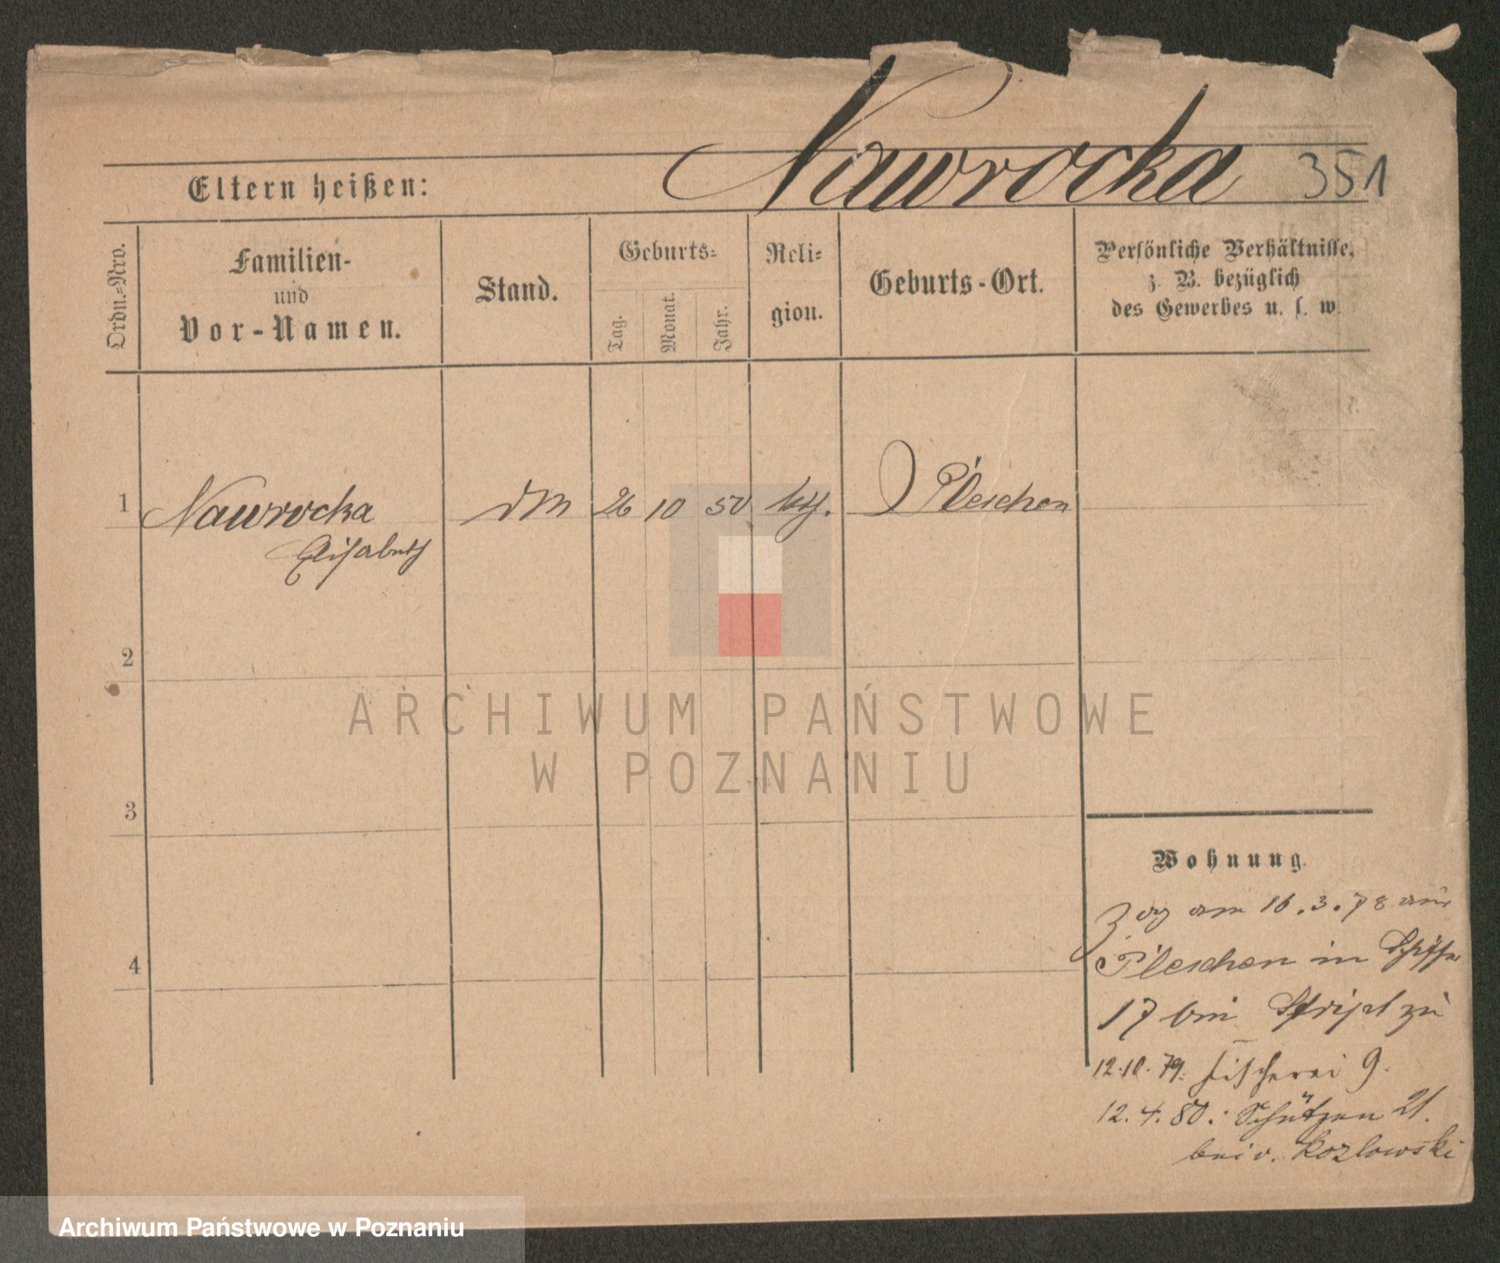 Nawrocka 351
Eltern heißen:
Ordn.-Nro.
Familien-
und
Vor-Namen.
Stand.
Geburts-
Tag.
Monat.
Jahr.
Reli-
gion.
Geburts-Ort.
Persönliche Verhältnisse,
z. B. bezüglich
des Gewerbes u. s. w.
1 Nawrocka 26 10 50 kth. Pleschen
Elisabeth
2
3
4
Wohnung.
Zog am 16.3.78 aus
Pleschen in
17 bei zu
12.10.79. Fischerei 9.
12.4.80.: Schützen 21.
bei v. Kozlowski
ARCHIWUM PAŃSTWOWE
W POZNANIU
Archiwum Państwowe w Poznaniu